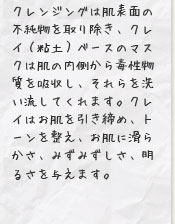 クレンジングは肌表面の
不純物を取り除き、クレ
イ（粘土）ベースのマス
クは肌の内側から毒性物
質を吸収し、それらを洗
い流してくれます。クレ
イはお肌を引き締め、ト
ーンを整え、お肌に滑ら
かさ、みずみずしさ、明
るさを与えます。